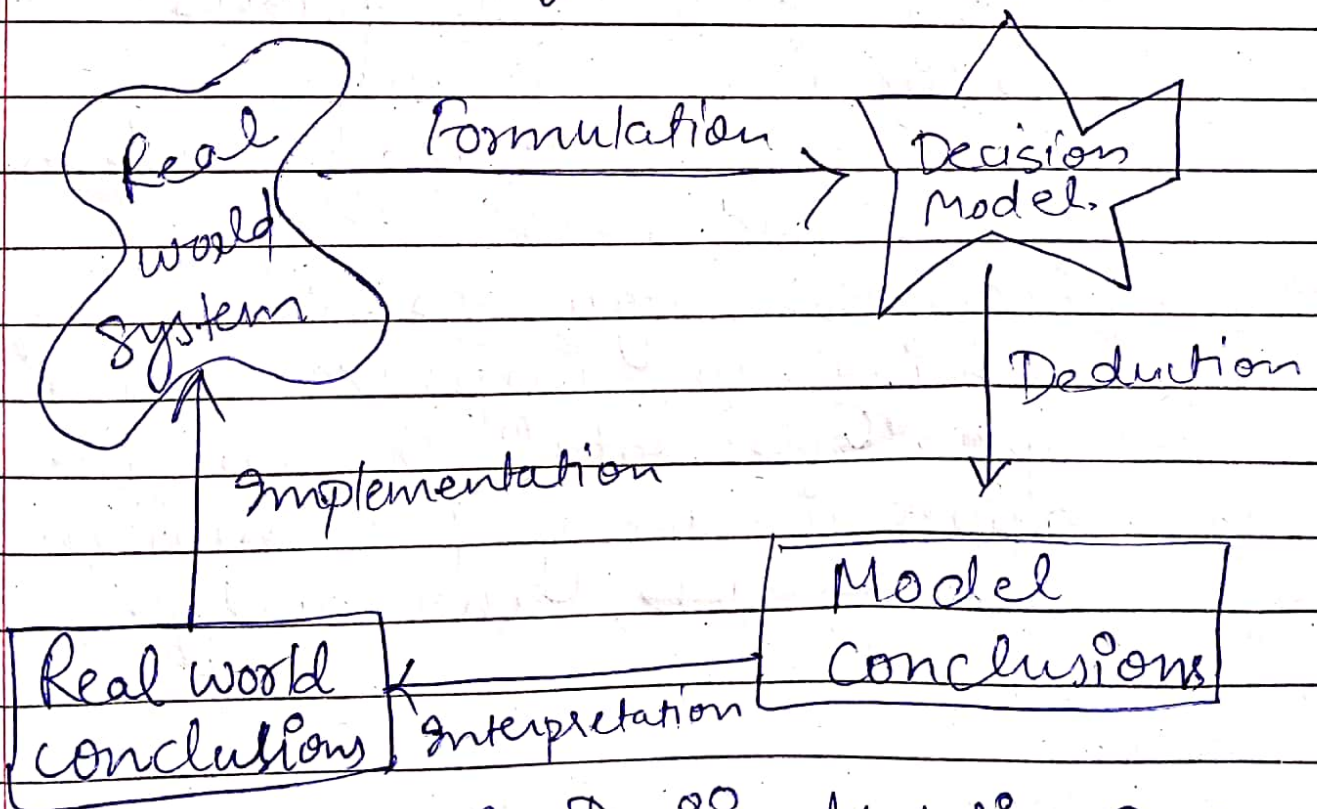 Real
world
system
Formulation
Decision
Model.
Deduction
Implementation
Model
Conclusions
Interpretation
Real world
conclusions